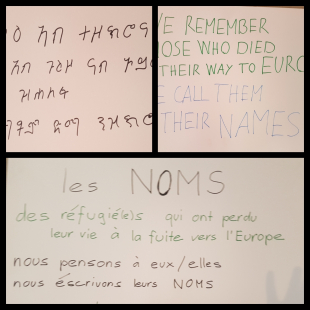 ኣብ ተዘክሮ
ኣብ ጉዕዞ ናብ
ዝሐለፉ
WE REMEMBER
THOSE WHO DIED
THEIR WAY TO EURO
E CALL THEM
THEIR NAMES
les NOMS
des réfugié(e)s qui ont perdu
leur vie à la fuite vers l'Europe
nous pensons à eux/elles
nous écrivons leurs NOMS